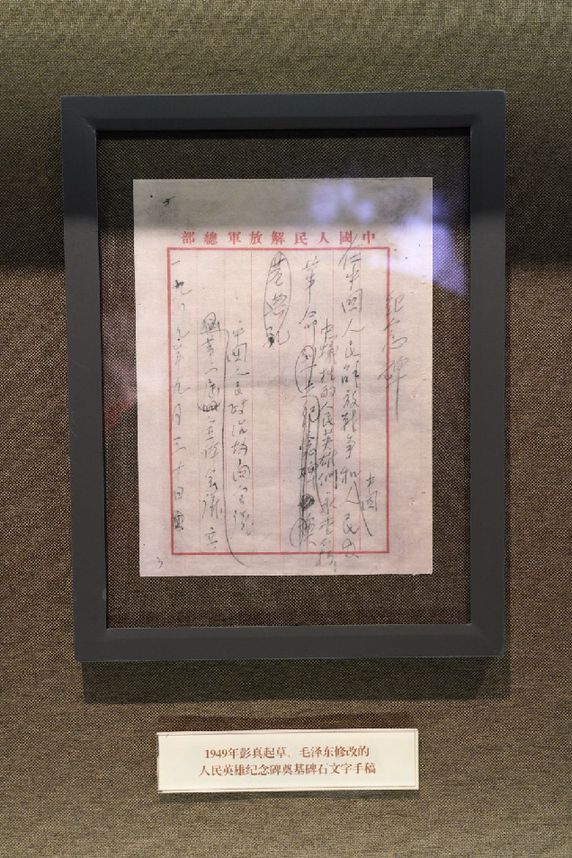 中國人民解放軍總部
紀念碑
在中国人民解放战争和人民
中国
牺牲的人民英雄们永垂
革命
纪念碑
中国人民政治协商会议
会议
一九四九年九月三十日
1949年彭真起草、毛泽东修改的
人民英雄纪念碑奠基碑石文字手稿